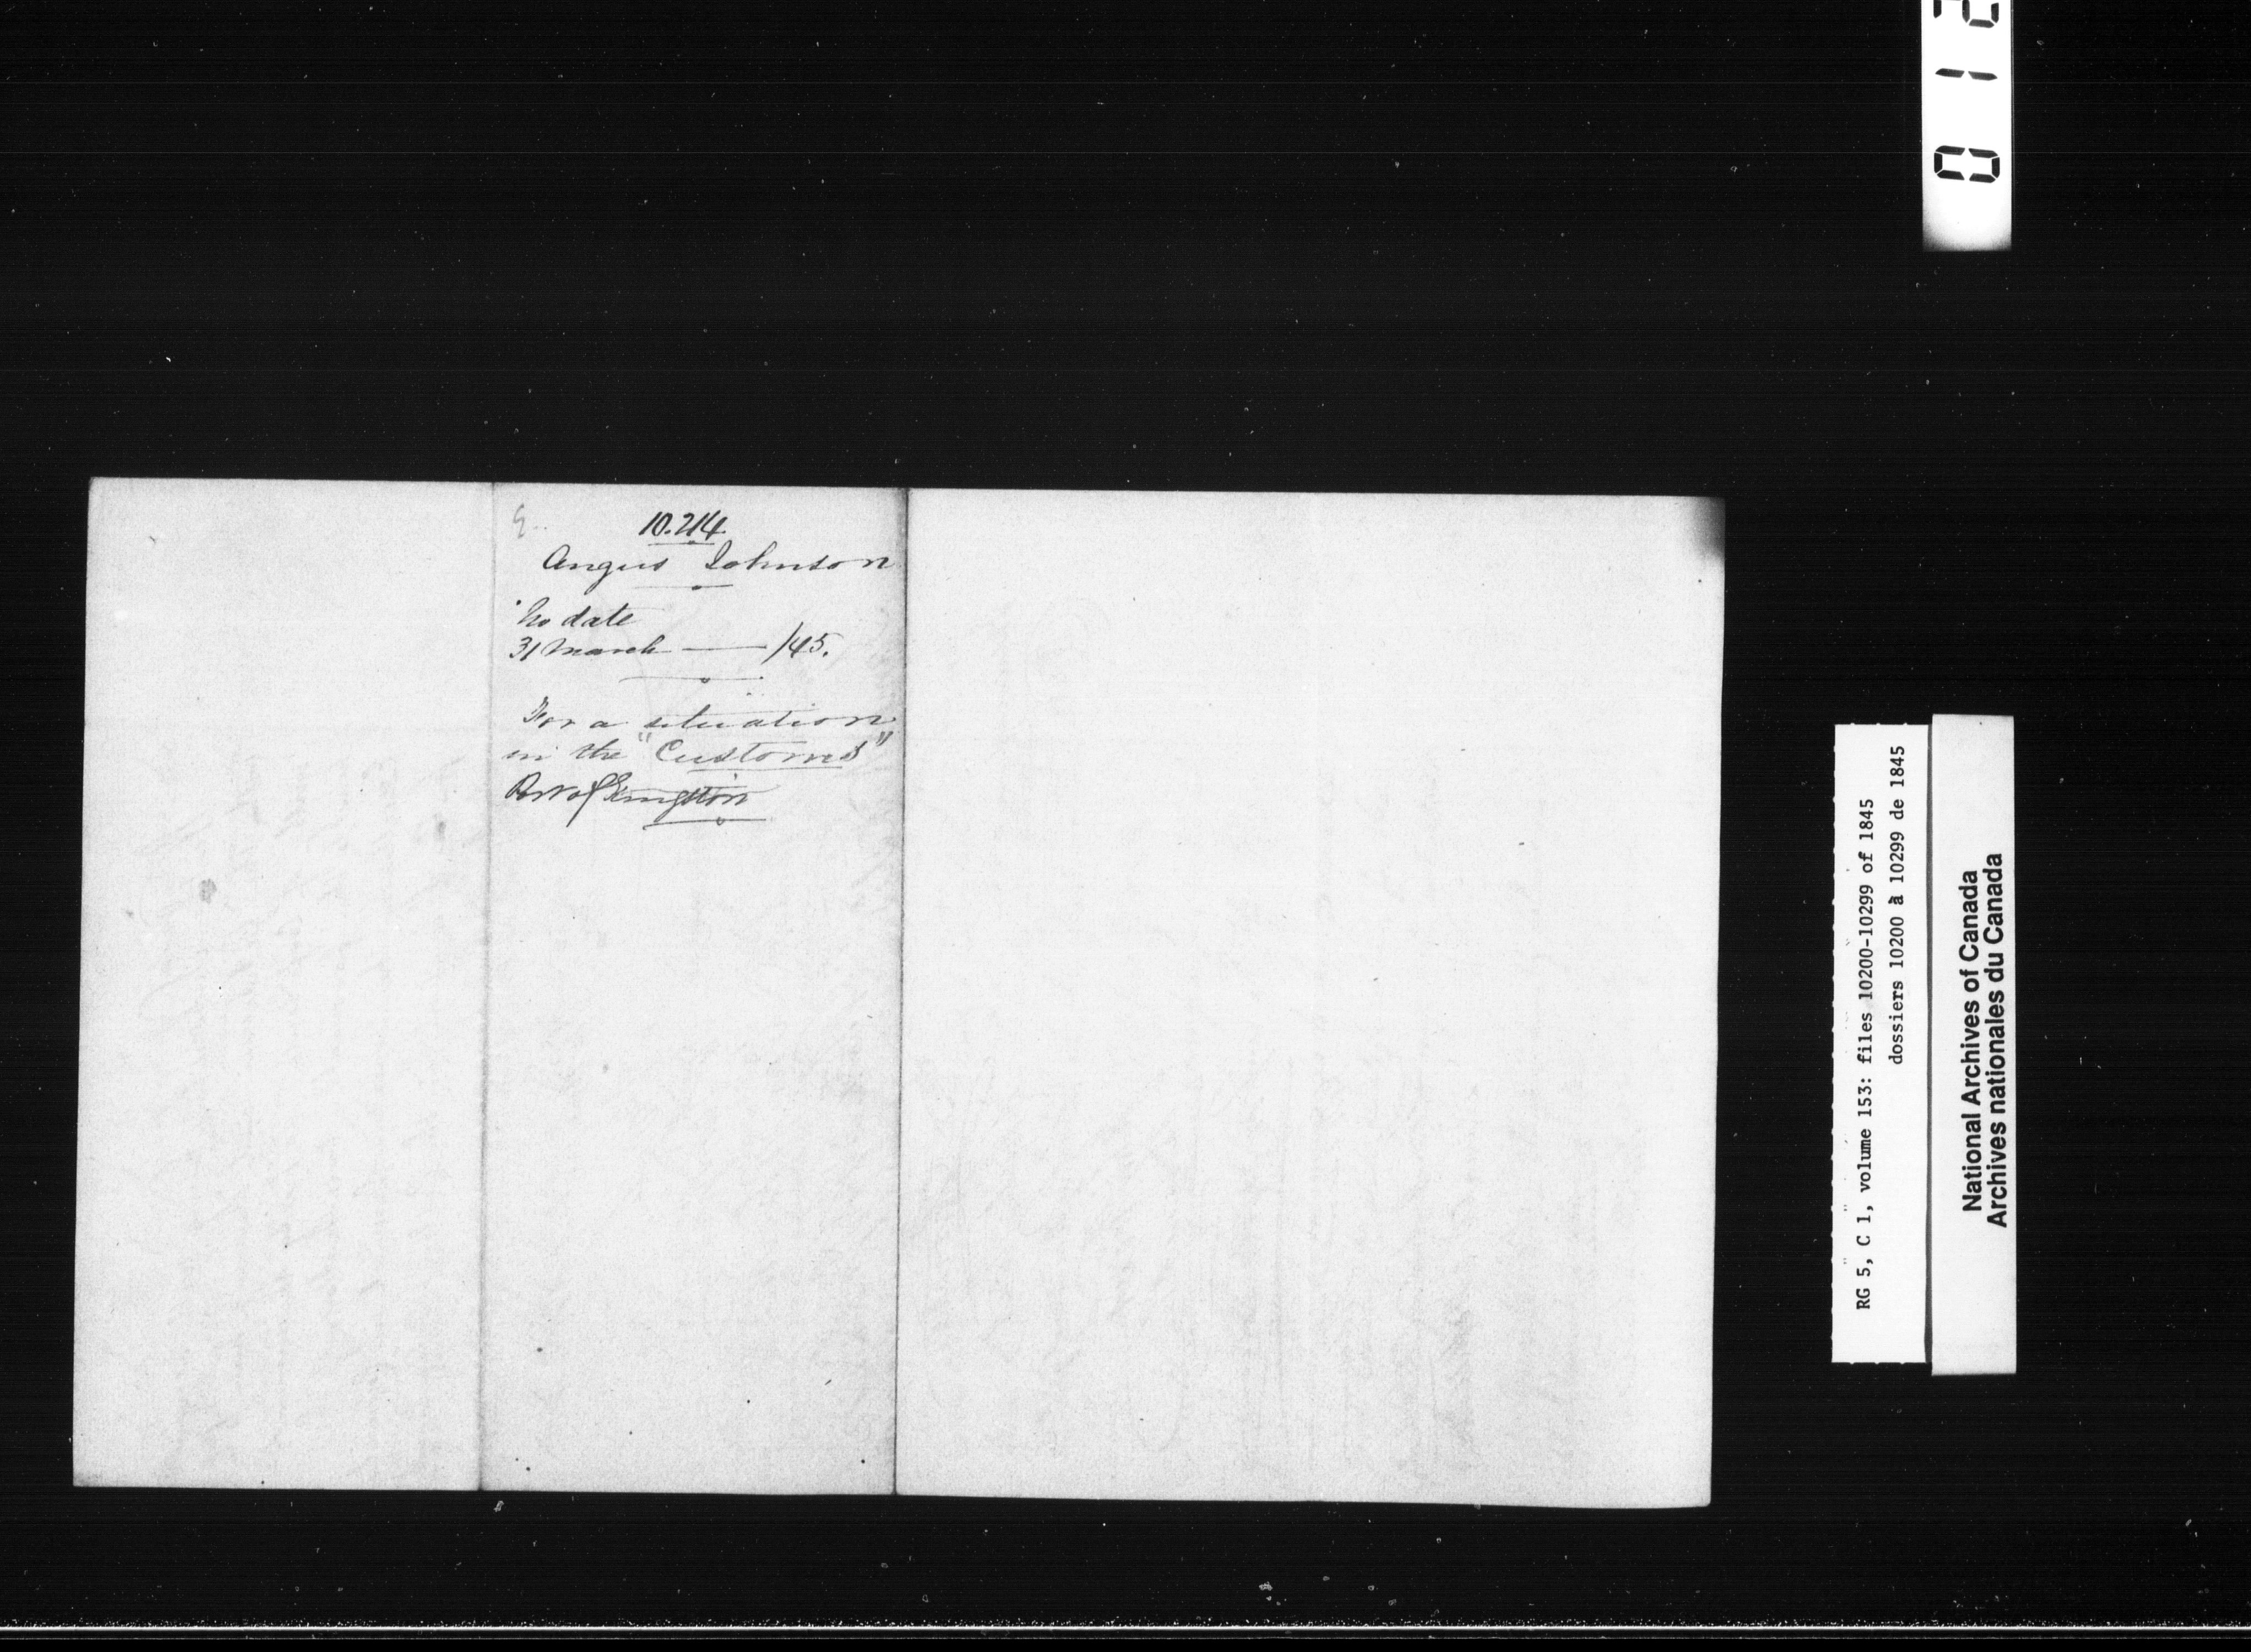 10.214
Angus Johnson
No date
31 March — /45.
For a situation
in the "Customs"
Port of Kingston
RG 5, C 1, volume 153: files 10200-10299 of 1845
dossiers 10200 à 10299 de 1845
National Archives of Canada
Archives nationales du Canada
0 1 2